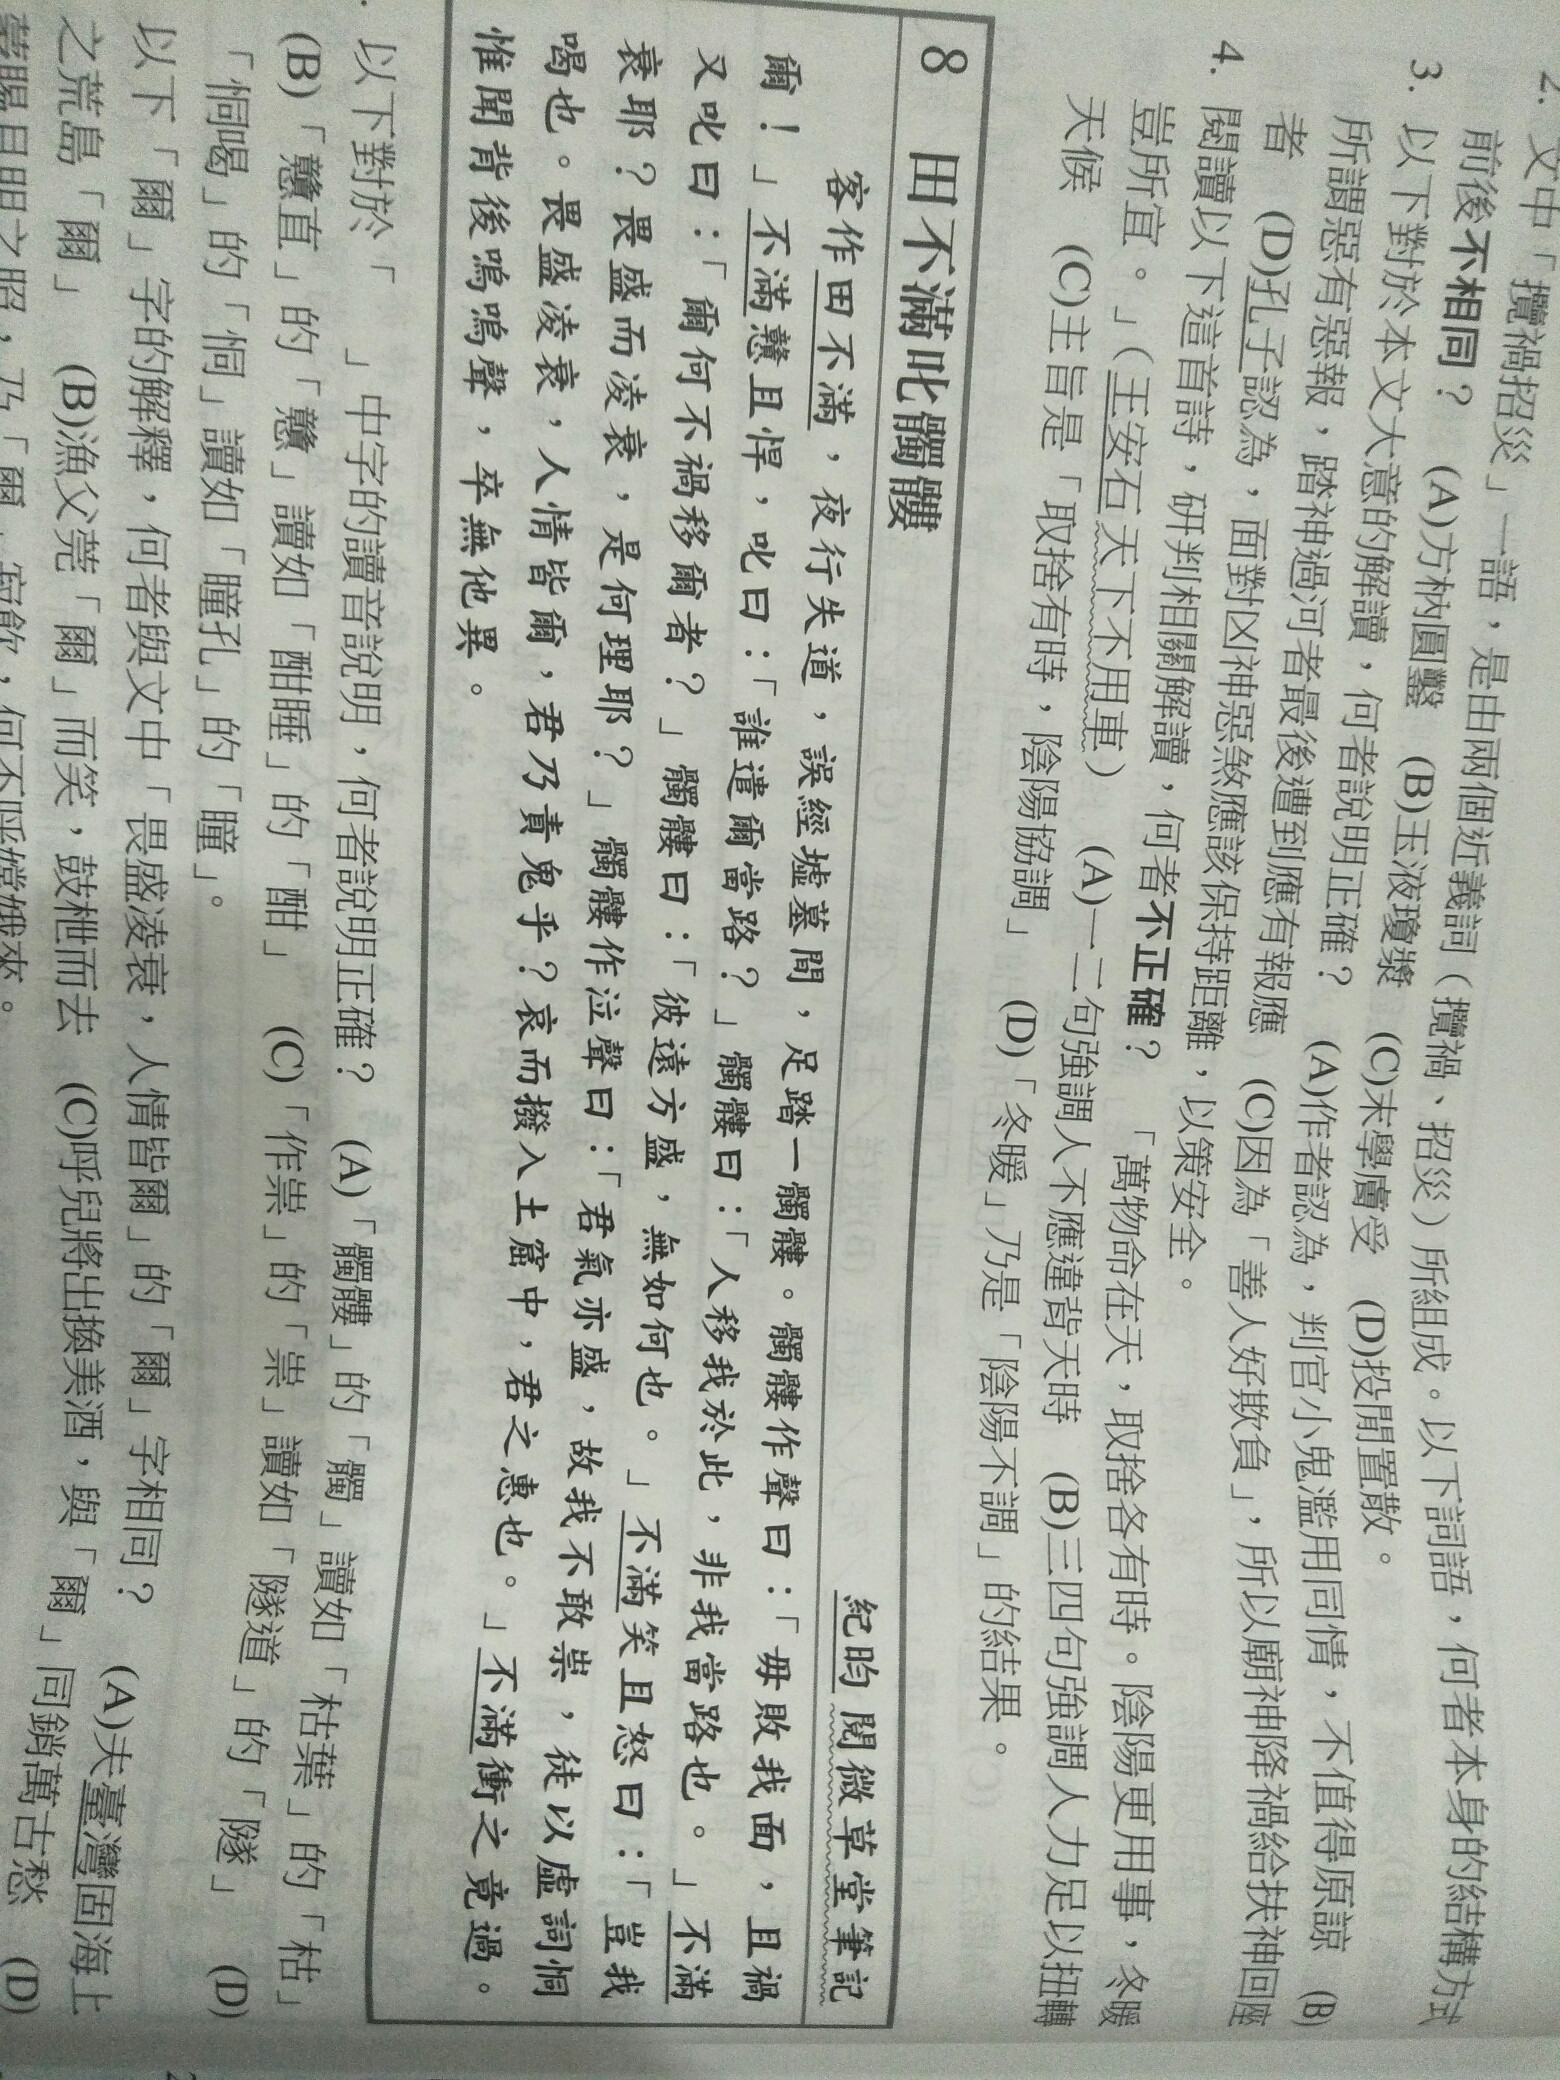 2. 文中「攬禍招災」一語，是由兩個近義詞（攬禍、招災）所組成。以下詞語，何者本身的結構方式
前後不相同？　(A)方枘圓鑿　(B)玉液瓊漿　(C)末學膚受　(D)投閒置散。
3. 以下對於本文大意的解讀，何者說明正確？　(A)作者認為，判官小鬼濫用同情，不值得原諒　(B)
所謂惡有惡報，踏神過河者最後遭到應有報應　(C)因為「善人好欺負」，所以廟神降禍給扶神回座
者　(D)孔子認為，面對凶神惡煞應該保持距離，以策安全。
4. 閱讀以下這首詩，研判相關解讀，何者不正確？　「萬物命在天，取捨各有時。陰陽更用事，冬暖
豈所宜。」（王安石天下不用車）　(A)一二句強調人不應違背天時　(B)三四句強調人力足以扭轉
天候　(C)主旨是「取捨有時，陰陽協調」　(D)「冬暖」乃是「陰陽不調」的結果。
8　田不滿叱髑髏
紀昀閱微草堂筆記
客作田不滿，夜行失道，誤經墟墓間，足踏一髑髏。髑髏作聲曰：「毋敗我面，且禍
爾！」不滿戇且悍，叱曰：「誰遣爾當路？」髑髏曰：「人移我於此，非我當路也。」不滿
又叱曰：「爾何不禍移爾者？」髑髏曰：「彼遠方盛，無如何也。」不滿笑且怒曰：「豈我
衰耶？畏盛而凌衰，是何理耶？」髑髏作泣聲曰：「君氣亦盛，故我不敢祟，徒以虛詞恫
喝也。畏盛凌衰，人情皆爾，君乃責鬼乎？哀而撥入土窟中，君之惠也。」不滿衝之竟過。
惟聞背後嗚嗚聲，卒無他異。
以下對於「　」中字的讀音說明，何者說明正確？　(A)「髑髏」的「髑」讀如「枯葉」的「枯」
(B)「戇直」的「戇」讀如「酣睡」的「酣」　(C)「作祟」的「祟」讀如「隧道」的「隧」　(D)
「恫喝」的「恫」讀如「瞳孔」的「瞳」。
以下「爾」字的解釋，何者與文中「畏盛凌衰，人情皆爾」的「爾」字相同？　(A)夫臺灣固海上
之荒島「爾」　(B)漁父莞「爾」而笑，鼓枻而去　(C)呼兒將出換美酒，與「爾」同銷萬古愁　(D)